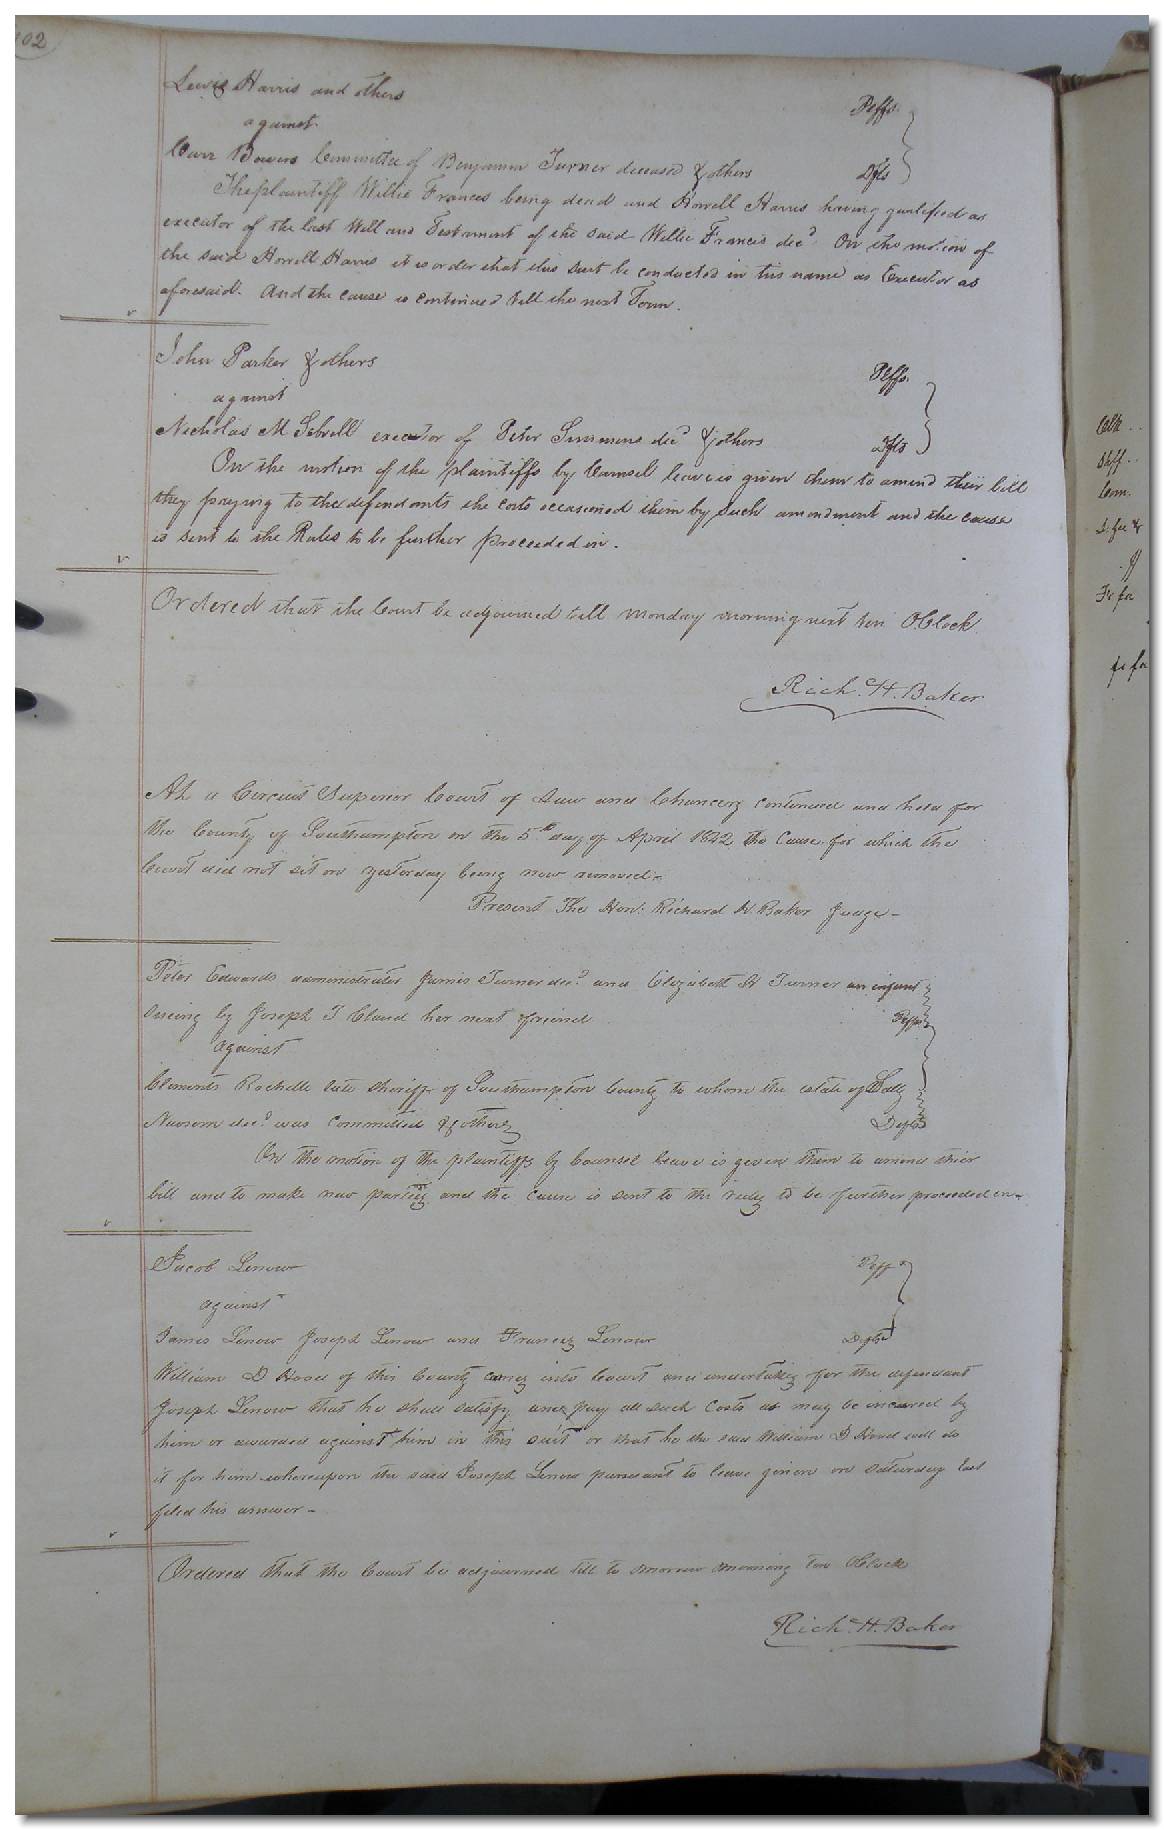 102
Lewis Harris and others Plffs.
against
Carr Bowers Committee of Benjamin Turner deceased & others Dfts
The plaintiff Willie Frances being dead and Howell Harris having qualified as
executor of the last Will and Testament of the said Willie Francis decd. On the motion of
the said Howell Harris it is order that this suit be conducted in his name as Executor as
aforesaid. And the cause is continued till the next Term.
John Parker & others Plffs.
against
Nicholas M Sebrell executor of Peter Simmons decd & others Dfts
On the motion of the plaintiffs by Counsel leave is given them to amend their bill
they paying to the defendants the costs occasioned them by such amendment and the cause
is sent to the Rules to be further proceeded in.
Ordered that the Court be adjourned till Monday morning next ten OClock
Rich. H. Baker
At a Circuit Superior Court of Law and Chancery continued and held for
the County of Southampton on the 5th day of April 1842, the cause for which the
Court did not sit on yesterday being now removed-
Present The Hon: Richard H. Baker Judge-
Peter Edwards administrator James Turner decd and Elizabeth H Turner an infant
sueing by Joseph T Claud her next friend Plffs
against
Clements Rochelle late sheriff of Southampton County to whom the estate of
Newsom decd was committed & others Defts
On the motion of the plaintiffs by Counsel leave is given them to amend thier
bill and to make new parties and the cause is sent to the rules to be further proceeded in-
Jacob Lenow Plff
against
James Lenow Joseph Lenow and Frances Lenow Defts
William D Hood of this County comes into Court and undertakes for the defendant
Joseph Lenow that he shall satisfy and pay all such costs as may be incured by
him or awarded against him in this suit or that he the said William D Hood will do
it for him whereupon the said Joseph Lenow pursuant to leave given on saturday last
filed his answer-
Ordered that the Court be adjourned till to morrow morning ten OClock
Rich. H. Baker